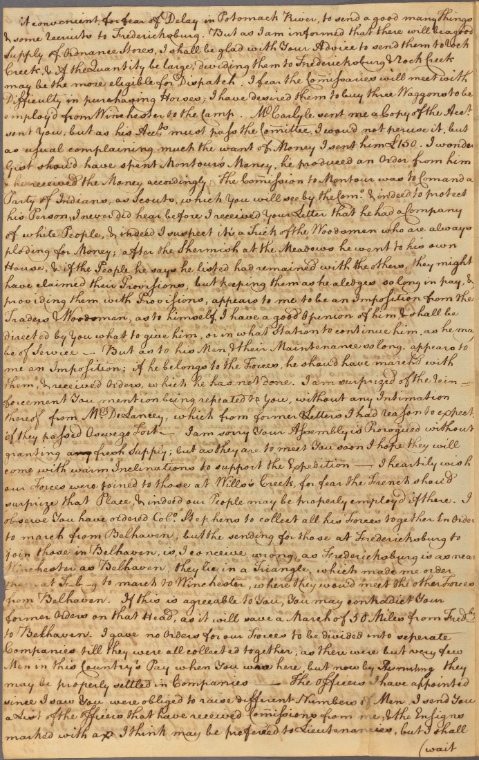 it convenient, for fear of Delay in Potomack River, to send a good many things
& some recruits to Fredericksburg. But as I am informed that there will be a good
Supply of Ordnance Stores, I shall be glad with Your Advice to send them to Rock
Creek, & if the Quantity be large, dividing them to Fredericksburg & Rock Creek
may be the more eligible for Dispatch. I fear the Comissaries will meet with
Difficulty in purchasing Horses, I have desired them to buy three Waggons to be
employ'd from Winchester to the Camp. Mr Carlyle sent me a Copy of the Acct.
sent You, but as his Accts must pass the Comittee, I woud not peruse it, but
as usual complaining much the want of Money I sent him £150. I wonder
Gist should have spent Montours Money, he produced an Order from him
& he received the Money accordingly; The Comission to Montour was to Comand a
Party of Indians, as Scouts, which You will see by the Com. & indeed to protect
his Person, I never did hear before I received Your Letter that he had a Company
of white People, & indeed I suspect it's a Trick of the Woodsmen who are always
ploding for Money; after the Skermish at the Meadows he went to his own
House, & if the People he says he listed had remained with the others, they might
have claimed their Provisions, but keeping them as he aledges so long in pay, &
providing them with Provisions, appears to me to be an Imposition from the
Traders & Woodsmen, as to himself I have a good Opinion of him & shall be
directed by You what to give him, or in what Station to continue him, as he may
be of Service — But as to his Men & their Maintenance so long, appears to
me an Imposition; if he belongs to the Forces, he should have march'd with
them, & received Orders, which he has not done. I am surprized of the Rein=
forcement You mention being repeated to You, without any Intimation
thereof from Mr DeLancey, which from former Letters I had reason to expect
if they passed Oswego Fort — I am sorry Your Assembly is Prorogued without
granting any fresh Supply; but as they are to meet You soon I hope they will
come with warm Inclinations to support the Expedition — I heartily wish
our Forces were joined to those at Wills's Creek, for fear the French should
surprize that Place, & indeed our People may be properly employd if there. I
observe You have ordered Colo. Stephens to collect all his Forces together In order
to march from Belhaven, but the sending for those at Fredericksburg to
join those in Belhaven, is, I conceive wrong, as Fredericksburg is as near
Winchester as Belhaven, they lie in a Triangle, which made me order
at to march to Winchester, where they would meet the other Forces
from Belhaven. If this is agreeable to You, You may contradict Your
former Orders on that Head, as it will save a March of 50 Miles from Fredg
to Belhaven. I gave no Orders for our Forces to be divided into seperate
Companies till they were all collected together, as there were but very few
Men in this Country's Pay when You was here, but now by they
may be properly settled in Companies — The Officers I have appointed
since I saw You were obliged to raise different Numbers of Men, I send You
a List of the Officers that have received Comissions from me, & the Ensigns
marked with a x I think may be preferred to Lieutenancies, but I shall
(wait